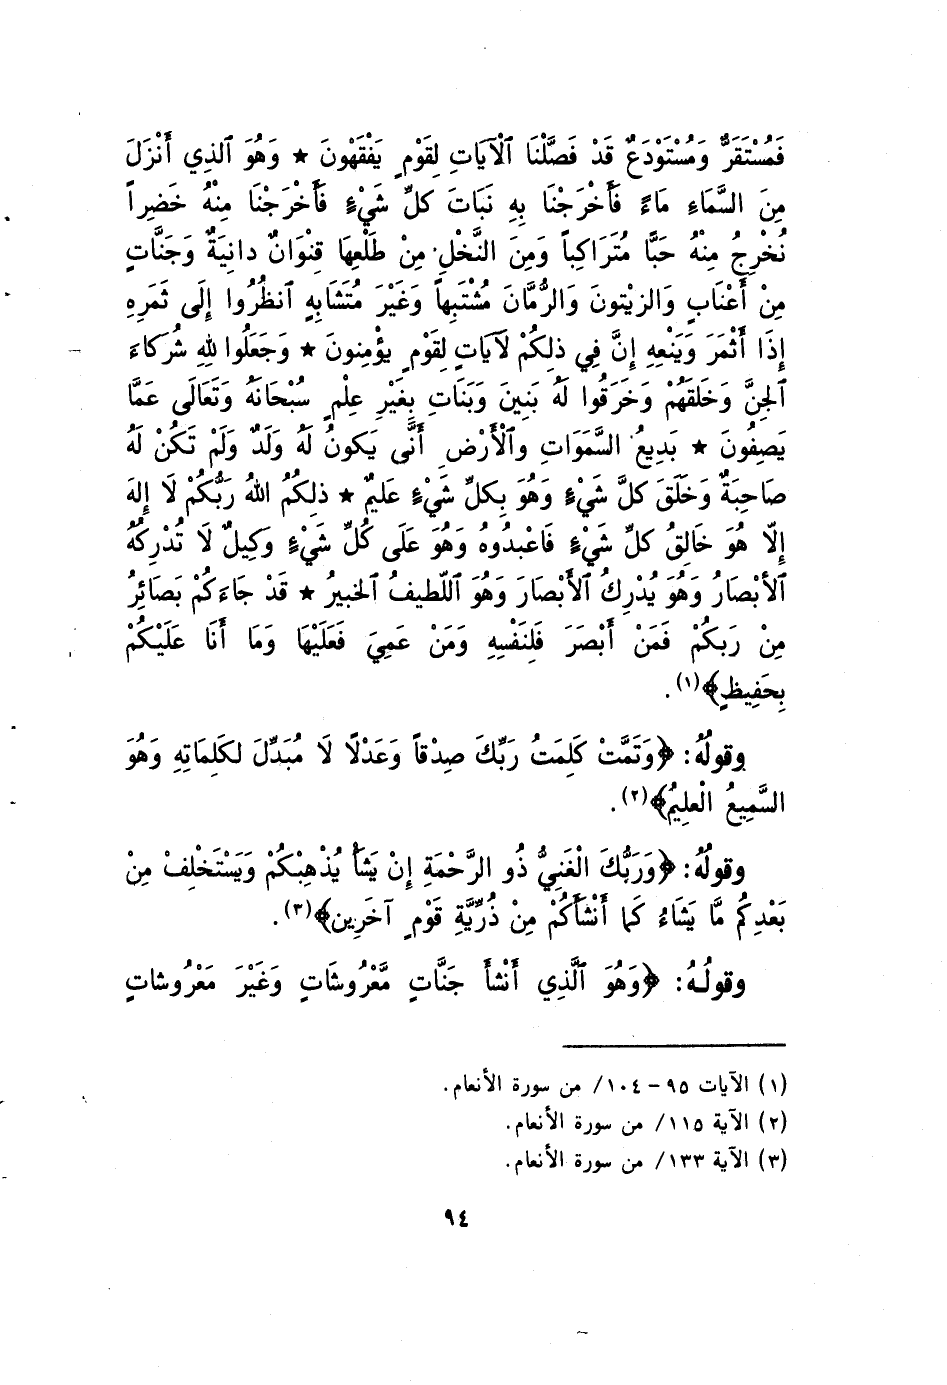 فَمُسْتَقَرٌّ وَمُسْتَوْدَعٌ قَدْ فَصَّلْنَا ٱلْآيَاتِ لِقَوْمٍ يَفْقَهُونَ ★ وَهُوَ ٱلذِي أَنْزَلَ
مِنَ السَّمَاءِ مَاءً فَأَخْرَجْنَا بِهِ نَبَاتَ كلِّ شَيْءٍ فَأَخْرَجْنَا مِنْهُ خَضِراً
نُخْرِجُ مِنْهُ حَبًّا مُتَرَاكِباً وَمِنَ النَّخْلِ مِنْ طَلْعِهَا قِنْوَانٌ دانِيَةٌ وَجَنَّاتٍ
مِنْ أَعْنَابٍ وَالزيْتونَ وَالرُّمَّانَ مُشْتَبِهاً وَغَيْرَ مُتَشَابِهٍ ٱنظُرُوا إِلَى ثَمَرِهِ
إِذَا أَثْمَرَ وَيَنْعِهِ إِنَّ فِي ذلِكُمْ لَآيَاتٍ لِقَوْمٍ يؤْمِنونَ ★ وَجَعَلُوا لِلهِ شُرَكاءَ
ٱلجِنَّ وَخَلَقهُمْ وَخَرَقُوا لَهُ بَنِينَ وَبَنَاتٍ بِغَيْرِ عِلْمٍ سُبْحَانَهُ وَتَعَالَى عَمَّا
يَصِفُونَ ★ بَدِيعُ السَّمَوَاتِ وٱلْأَرْضِ أَنَّى يَكونُ لَهُ وَلَدٌ وَلَمْ تَكُنْ لَهُ
صَاحِبَةٌ وَخَلَقَ كلَّ شَيْءٍ وَهُوَ بِكلِّ شَيْءٍ عَليمٌ ★ ذلِكُمُ اللهُ رَبُّكُمْ لَا إِلهَ
إِلّا هُوَ خَالِقُ كلِّ شَيْءٍ فَاعْبدُوهُ وَهُوَ عَلَى كُلِّ شَيْءٍ وَكِيلٌ لَا تُدْرِكهُ
ٱلأبْصَارُ وَهُوَ يُدْرِكُ ٱلأَبْصَارَ وَهُوَ ٱللّطيفُ ٱلخبيرُ ★ قَدْ جَاءَكُمْ بَصَائِرُ
مِنْ رَبكُمْ فَمَنْ أَبْصَرَ فَلِنَفْسِهِ وَمَنْ عَمِيَ فَعَلَيْهَا وَمَا أَنَا عَلَيْكُمْ
بِحَفِيظٍ﴾(١).
وقولُهُ: ﴿وَتَمَّتْ كَلِمَتُ رَبِّكَ صِدْقاً وَعَدْلًا لَا مُبَدِّلَ لكَلِمَاتِهِ وَهُوَ
السَّمِيعُ الْعلِيمُ﴾(٢).
وقولُهُ: ﴿وَرَبُّكَ الْغَنِيُّ ذُو الرَّحْمَةِ إِنْ يَشَأْ يُذْهِبْكُمْ وَيَسْتَخْلِفْ مِنْ
بَعْدِكُم مَّا يَشَاءُ كَما أَنْشَأَكُمْ مِنْ ذُرِّيَّةِ قَوْمٍ آخَرِين﴾(٣).
وقولُهُ: ﴿وَهُوَ ٱلَّذِي أَنْشأَ جَنَّاتٍ مَّعْرُوشَاتٍ وَغَيْرَ مَعْرُوشاتٍ
(١) الآيات ٩٥ - ١٠٤/ من سورة الأنعام.
(٢) الآية ١١٥/ من سورة الأنعام.
(٣) الآية ١٣٣/ من سورة الأنعام.
٩٤